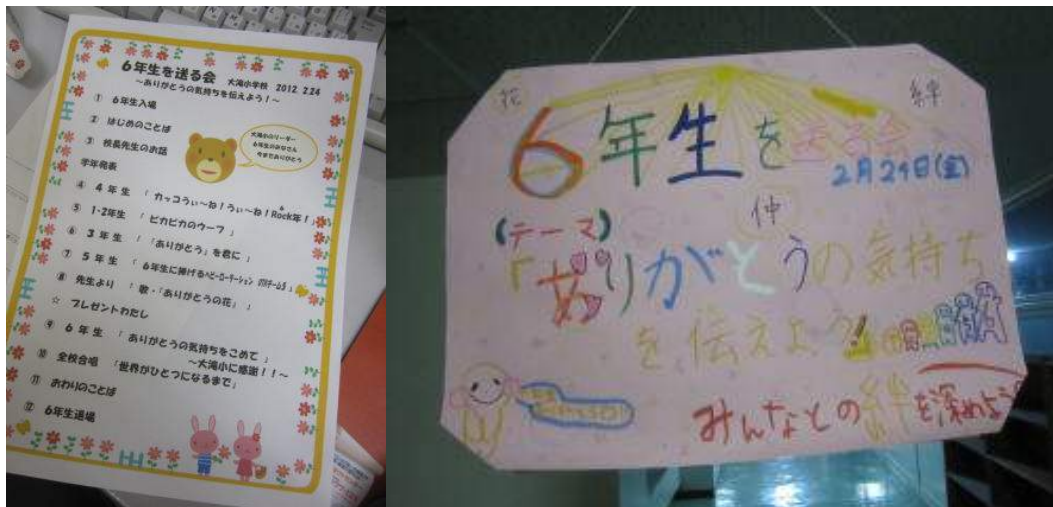 6年生を送る会 大滝小学校 2012.2.24
~ありがとうの気持ちを伝えよう!~
① 6年生入場
② はじめのことば
③ 校長先生のお話
大滝小のリーダー
6年生のみなさん
今までありがとう
学年発表
④ 4年生 「カッコうぃ~ね!うぃ~ね!Rock年!」
⑤ 1・2年生 「ピカピカのウーフ」
⑥ 3年生 「「ありがとう」を君に」
⑦ 5年生 「6年生に捧げるヘビーローテーション
⑧ 先生より 「歌・「ありがとうの花」」
☆ プレゼントわたし
⑨ 6年生 「ありがとうの気持ちをこめて」
~大滝小に感謝!!~
⑩ 全校合唱 「世界がひとつになるまで」
⑪ おわりのことば
⑫ 6年生退場
花
絆
6年生を送る会
2月24日(金)
仲
(テーマ)
「ありがとうの気持ち
を伝えよう!
みんなとの絆を深めよう